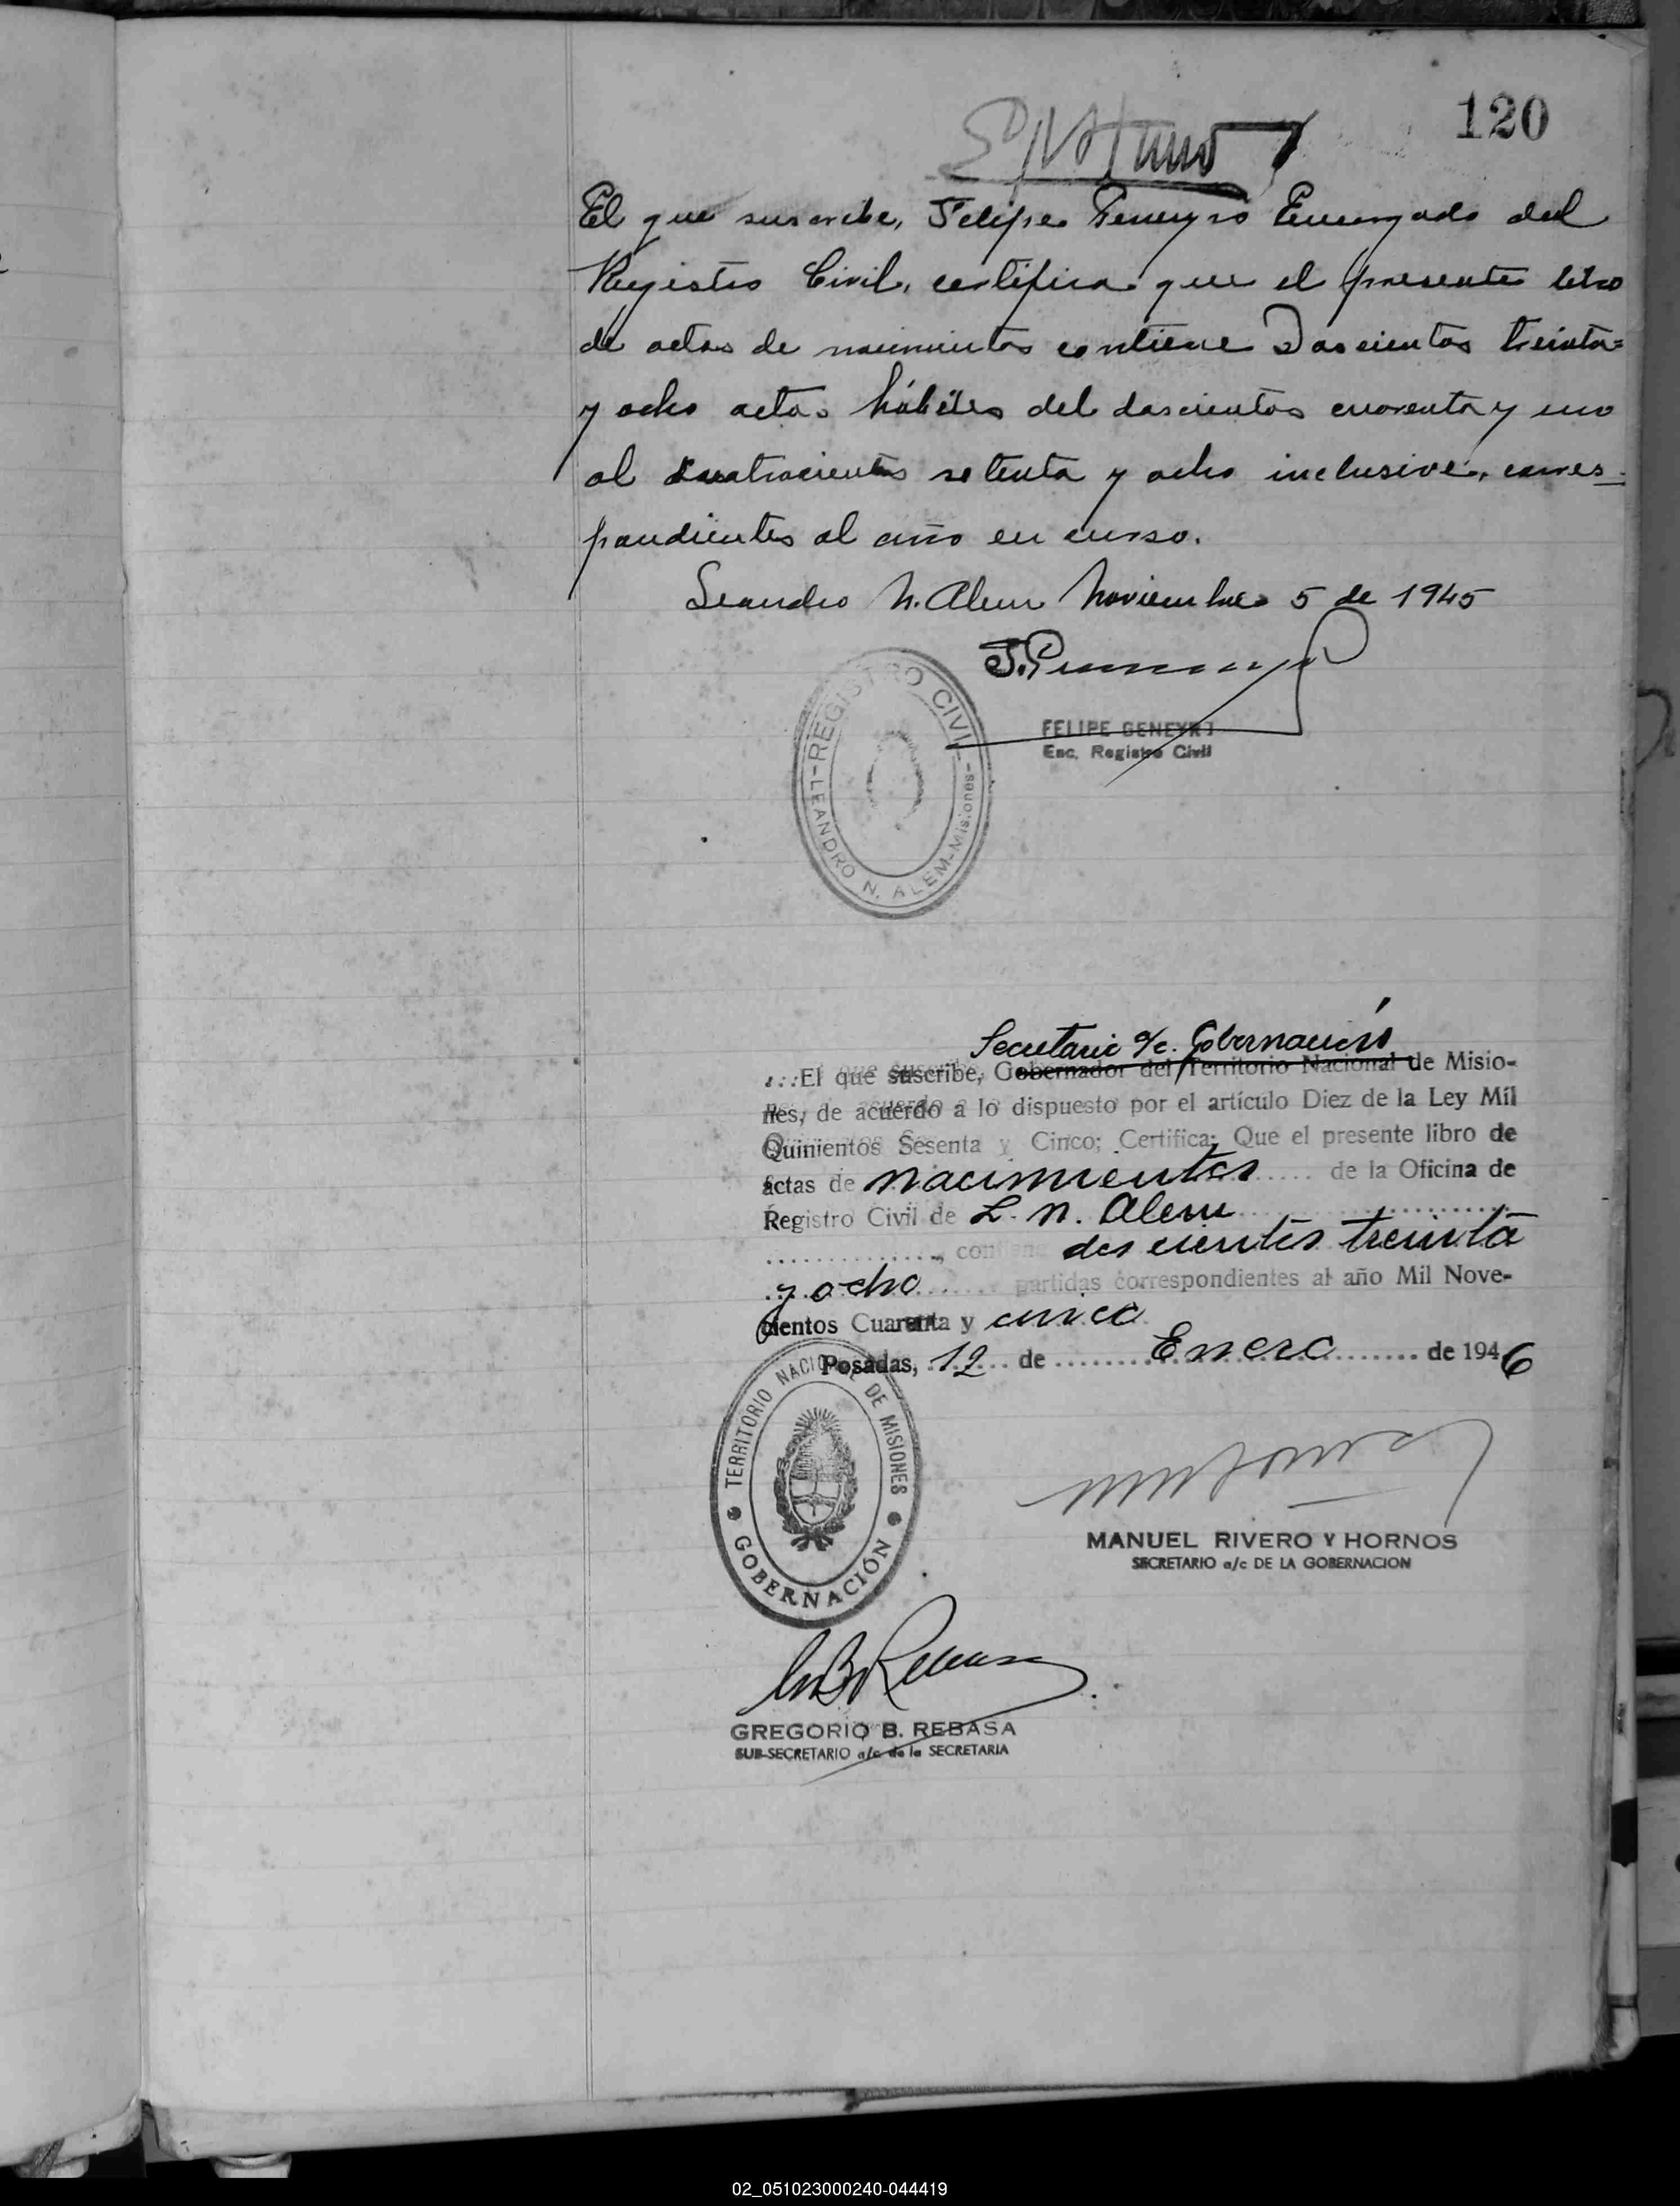 120
El que suscribe, Felipe Geneyro Encargado del
Registro Civil, certifica que el presente libro
de actas de nacimientos contiene Doscientos treinta=
y ocho actas hábiles del doscientos cuarenta y uno
al cuatrocientos setenta y ocho inclusive, corres-
pondientes al año en curso.
Leandro N. Alem Noviembre 5 de 1945
REGISTRO CIVIL
LEANDRO N. ALEM-Misiones-
FELIPE GENEYRO
Enc. Registro Civil
Secretario a/c. Gobernación
El que suscribe, Gobernador del Territorio Nacional de Misio-
nes, de acuerdo a lo dispuesto por el artículo Diez de la Ley Mil
Quinientos Sesenta y Cinco; Certifica: Que el presente libro de
actas de nacimientos de la Oficina de
Registro Civil de L. N. Alem
contiene doscientos treinta
y ocho partidas correspondientes al año Mil Nove-
cientos Cuarenta y cinco
Posadas, 12 de Enero de 1946
TERRITORIO NACIONAL DE MISIONES
GOBERNACIÓN
MANUEL RIVERO Y HORNOS
SECRETARIO a/c DE LA GOBERNACION
GREGORIO B. REBASA
SUB-SECRETARIO a/c de la SECRETARIA
02_051023000240-044419